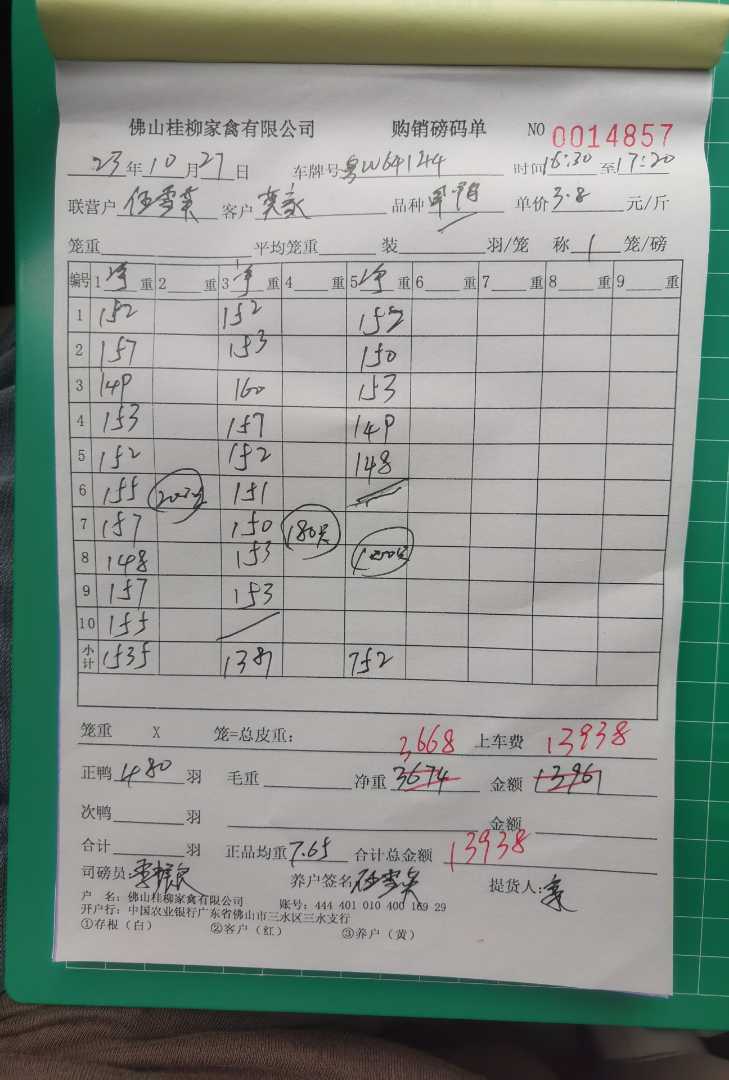 佛山桂柳家禽有限公司 购销磅码单 NO 0014857
23年10月27日 车牌号粤W64144 时间16:30至17:20
联营户 伍雪英 客户 莫家 品种 单价3.8元/斤
笼重 平均笼重 装 羽/笼 称 1 笼/磅
编号 1净重 2重 3净重 4重 5净重 6重 7重 8重 9重
1 152 152 152
2 157 153 150
3 149 160 153
4 153 157 149
5 152 152 148
6 155 151
7 157 150 180只
8 148 153
9 157 153
10 155
小计 1535 1381 752
笼重 X 笼=总皮重: 3668 上车费 13938
正鸭 480 羽 毛重 净重 3674 金额 13961
次鸭 羽 金额
合计 羽 正品均重 7.65 合计总金额 13938
司磅员: 养户签名 伍雪英 提货人:
户 名: 佛山桂柳家禽有限公司 账号: 444 401 010 400 169 29
开户行: 中国农业银行广东省佛山市三水区三水支行
①存根（白） ②客户（红） ③养户（黄）